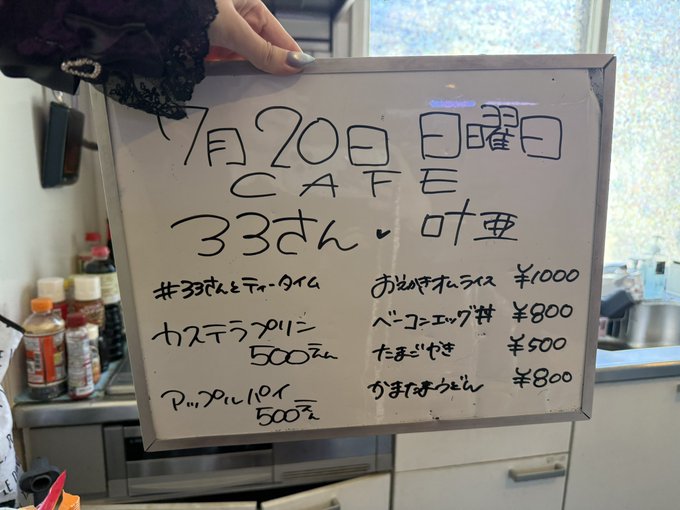 7月20日 日曜日
CAFE
33さん・叶亜
#33さんとティータイム
カステラプリン
500えん
アップルパイ
500えん
おえかきオムライス ¥1000
ベーコンエッグ丼 ¥800
たまごやき ¥500
かまたまうどん ¥800